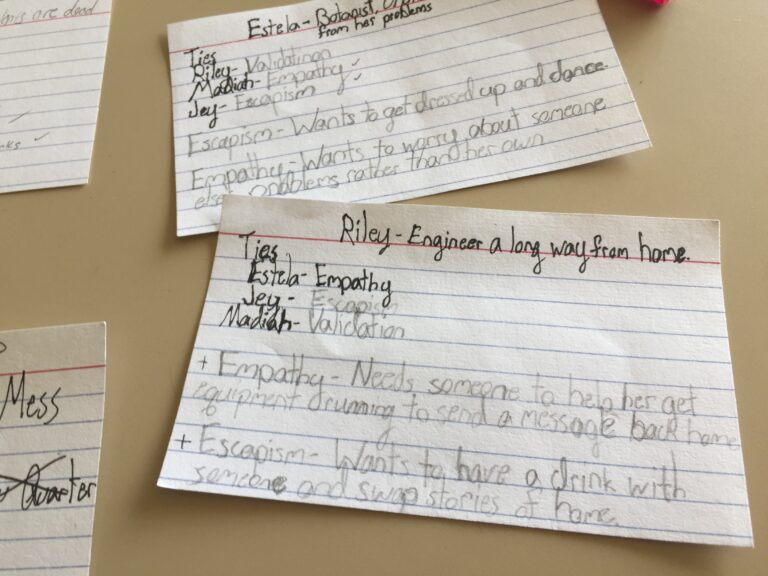 are dead
Estela - Botanist,
from her problems
Ties
Riley - Validation
Madiah - Empathy
Jey - Escapism
Escapism - Wants to get dressed up and dance
Empathy - Wants to worry about someone
else problems rather than her own
Riley - Engineer a long way from home.
Ties
Estela - Empathy
Jey - Escapism
Madiah - Validation
+ Empathy - Needs someone to help her get
equipment drunning to send a message back home
+ Escapism - Wants to have a drink with
someone and swap stories of home.
Mess
Quarter